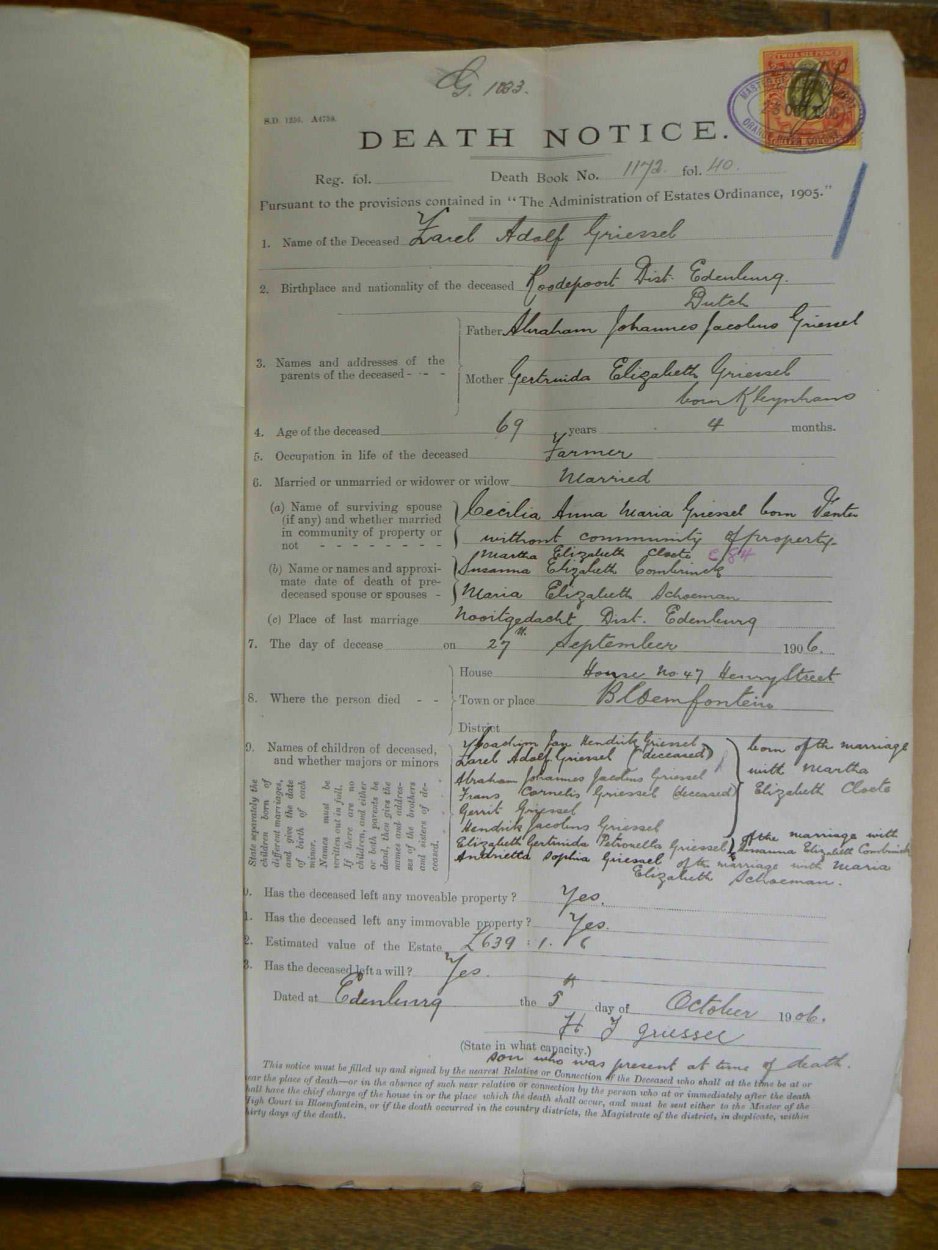 G. 1033.
S.D. 1256. A4759.
DEATH NOTICE.
Reg. fol. Death Book No. 1172 fol. 40.
Pursuant to the provisions contained in "The Administration of Estates Ordinance, 1905."
1. Name of the Deceased Karel Adolf Griessel
2. Birthplace and nationality of the deceased Roodepoort Dist. Edenburg.
Dutch
3. Names and addresses of the parents of the deceased - - -
Father Abraham Johannes Jacobus Griessel
Mother Gertruida Elizabeth Griessel
born Kleynhans
4. Age of the deceased 69 years 4 months.
5. Occupation in life of the deceased Farmer
6. Married or unmarried or widower or widow Married
(a) Name of surviving spouse (if any) and whether married in community of property or not - - - - - - -
Cecilia Anna Maria Griessel born Venter
without community of property
(b) Name or names and approximate date of death of predeceased spouse or spouses -
Martha Elizabeth Cloete
Susanna Elizabeth Combrinck
Maria Elizabeth Schoeman
(c) Place of last marriage Nooitgedacht Dist. Edenburg
7. The day of decease on 27th September 1906.
8. Where the person died - -
House House No 47 Henry Street
Town or place Bloemfontein
District
9. Names of children of deceased, and whether majors or minors
State separately the children born of different marriages, and give the date of birth of each minor.
Names must be written out in full.
If there are no children, and either or both parents be dead, then gives the names and addresses of the brothers and sisters of deceased.
Joachim Jan Hendrik Griessel
Karel Adolf Griessel (deceased)
Abraham Johannes Jacobus Griessel
Frans Cornelis Griessel (deceased)
Gerrit Griessel
Hendrik Jacobus Griessel
born of the marriage
with Martha
Elizabeth Cloete
Elizabeth Gertruida Petronella Griessel of the marriage with
Susanna Elizabeth Combrinck
Andrietta Sophia Griessel of the marriage with Maria
Elizabeth Schoeman.
0. Has the deceased left any moveable property? Yes.
1. Has the deceased left any immovable property? Yes.
2. Estimated value of the Estate £639 : 1. 6
3. Has the deceased left a will? Yes.
Dated at Edenburg the 5th day of October 1906.
H J Griessel
(State in what capacity.)
son who was present at time of death.
This notice must be filled up and signed by the nearest Relative or Connection of the Deceased who shall at the time be at or
near the place of death—or in the absence of such near relative or connection by the person who at or immediately after the death
shall have the chief charge of the house in or the place which the death shall occur, and must be sent either to the Master of the
High Court in Bloemfontein, or if the death occurred in the country districts, the Magistrate of the district, in duplicate, within
thirty days of the death.